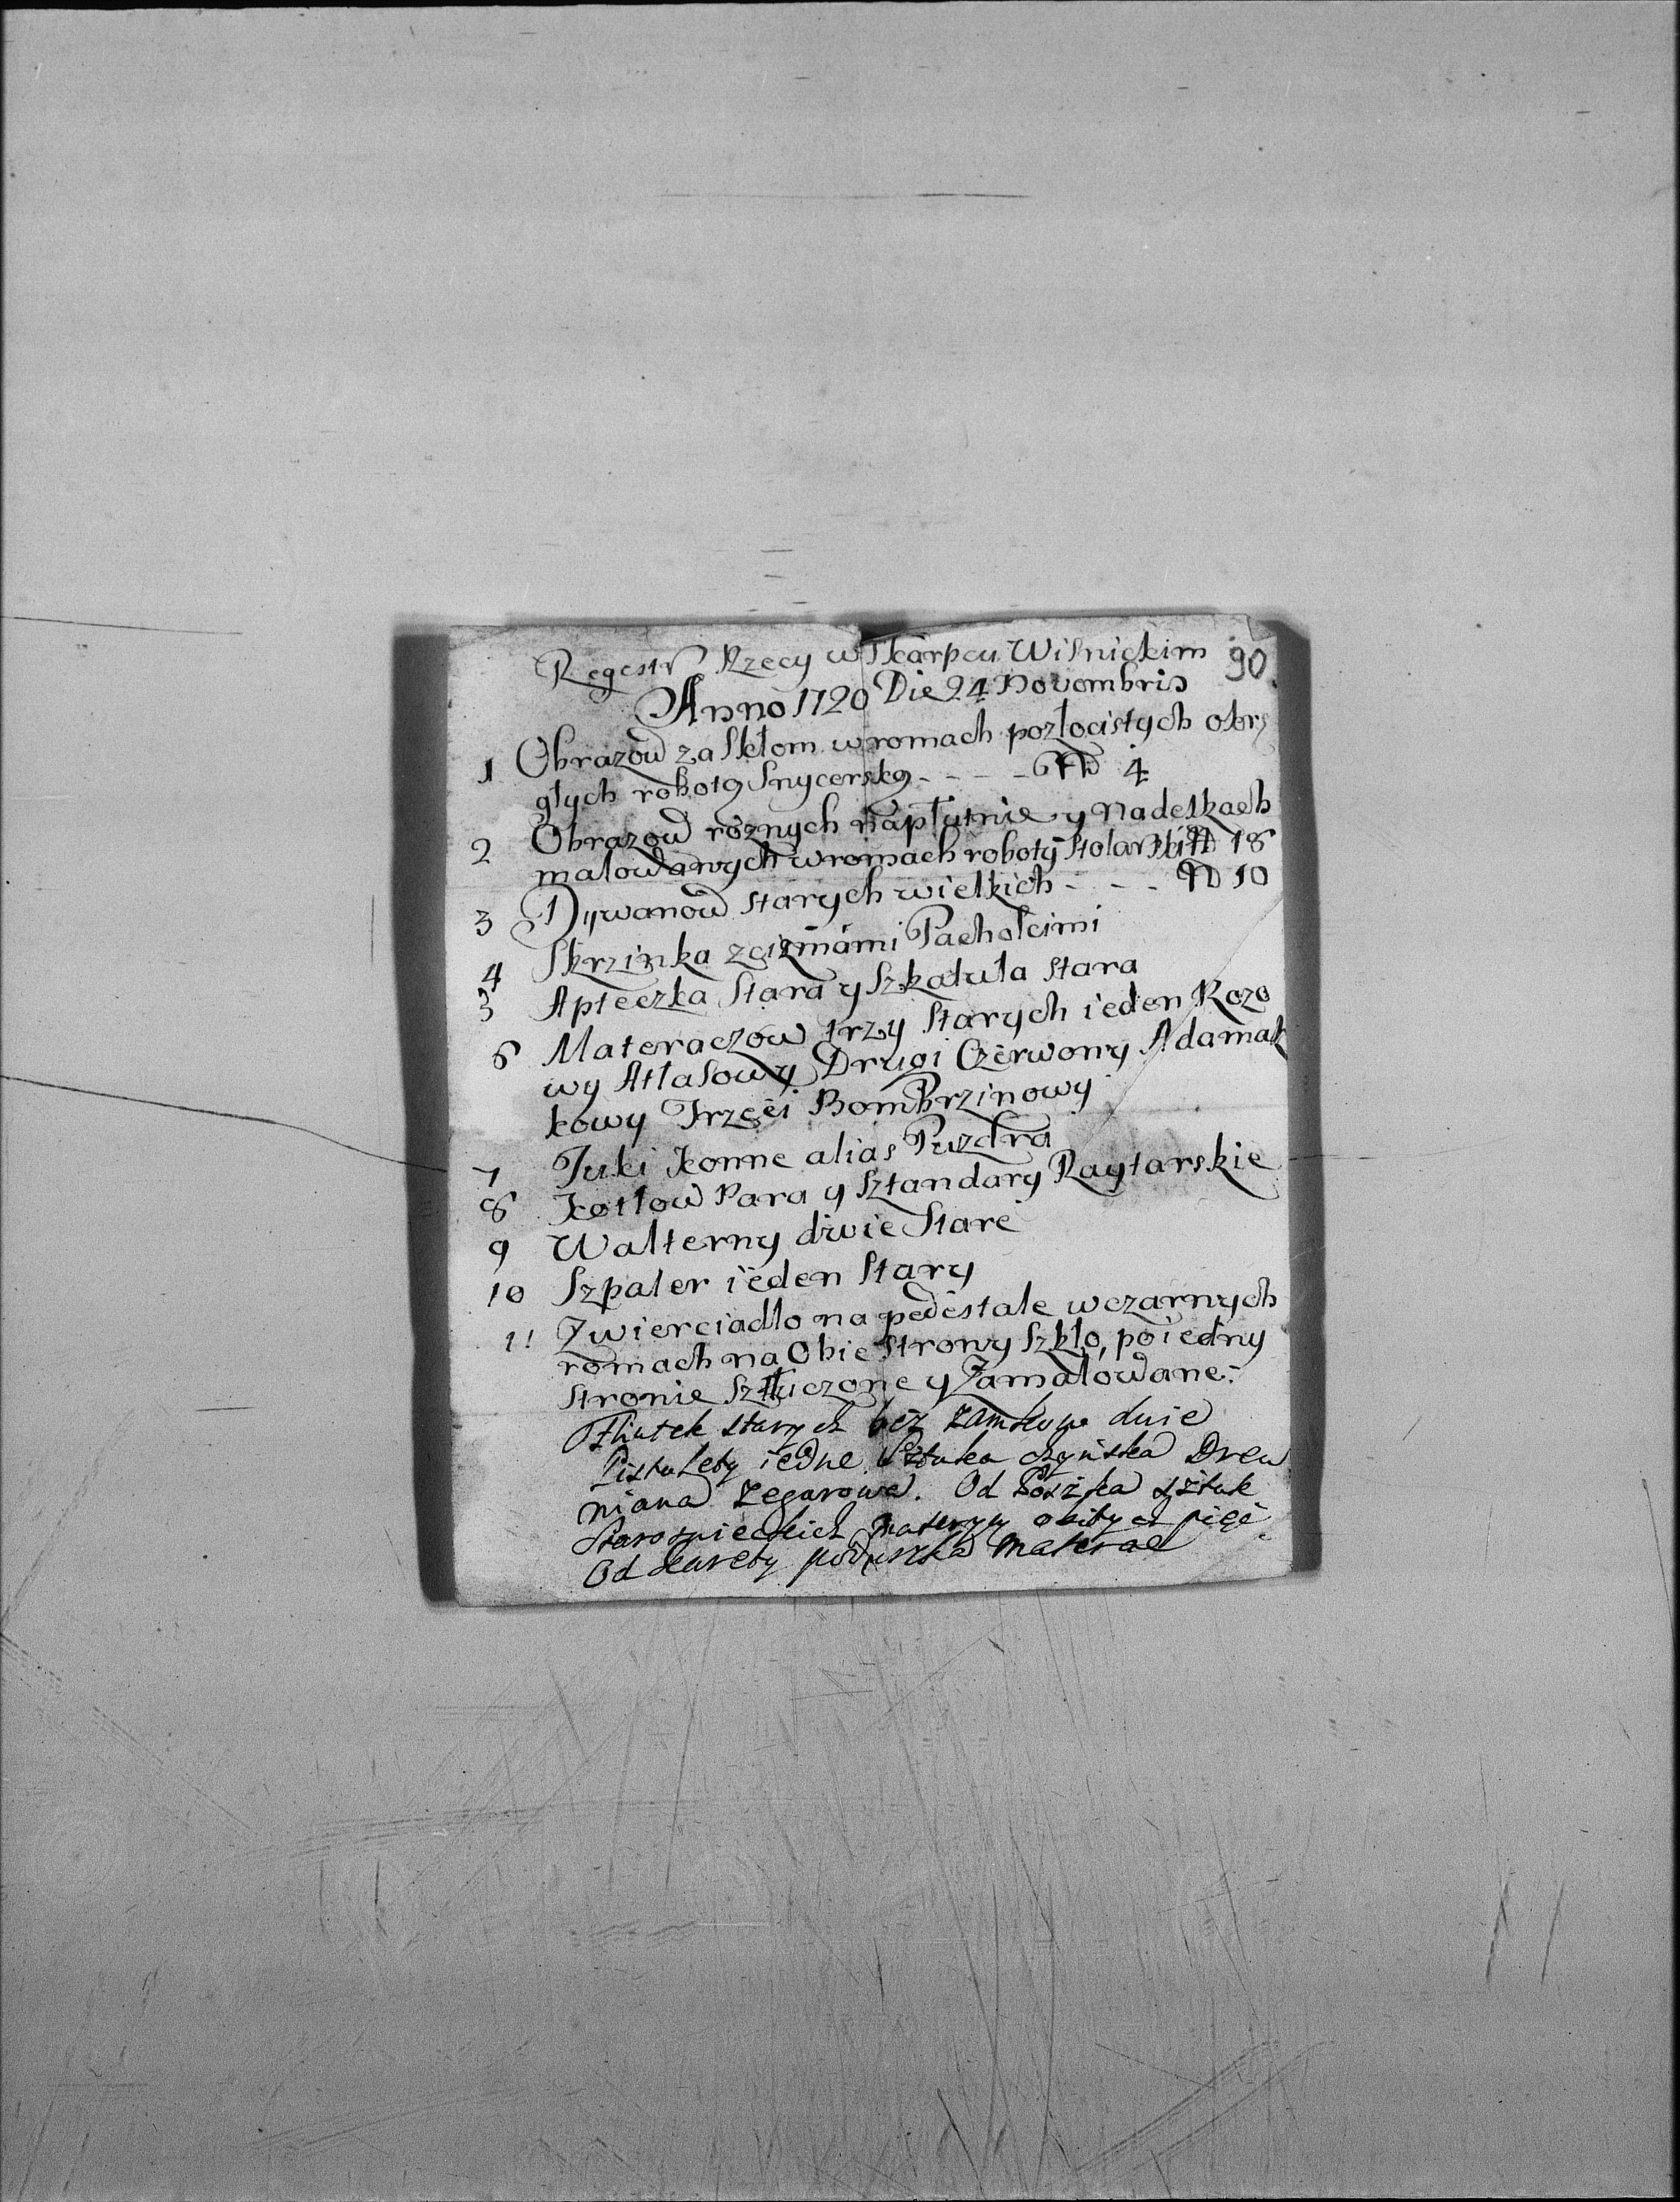 Regestr Rzecy w Skarpcu Wisnickim 90
Anno 1720 Die 24 Novembris
1 Obrazow za skłom w romach pozłocistych okrę
głych roboty Snycersky - - - - - No 4
2 Obrazow roznych napłutnie y na deskach
malowanych w romach roboty stolarski No 18
3 Dywanow starych wielkich - - - No 10
4 Skrzinka z gizmami Pacholcimi
5 Apteczka Stara y Szkatuła stara
6 Materaczow trzy starych ieden Rozo
wy Atłasowy Drugi Czerwony Adamasz
kowy Trzeci Bombrzinowy
7 Juki konne alias Puzdra
8 Kotłow Para y Sztandary Raytarskie
9 Walterny dwie Stare
10 Szpaler ieden Stary
11 Zwierciadło na pedestale w czarnych
romach na Obie strony Szkło, po iedny
stronie Sztłuczone y Zamalowane.
starych bez zamkow dwie
Pistolety iedne Sztuka Drew
niana zegarowa. Od sztuk
Staroswieckich materyy obitych pięć
Od Karety poduszka Materac